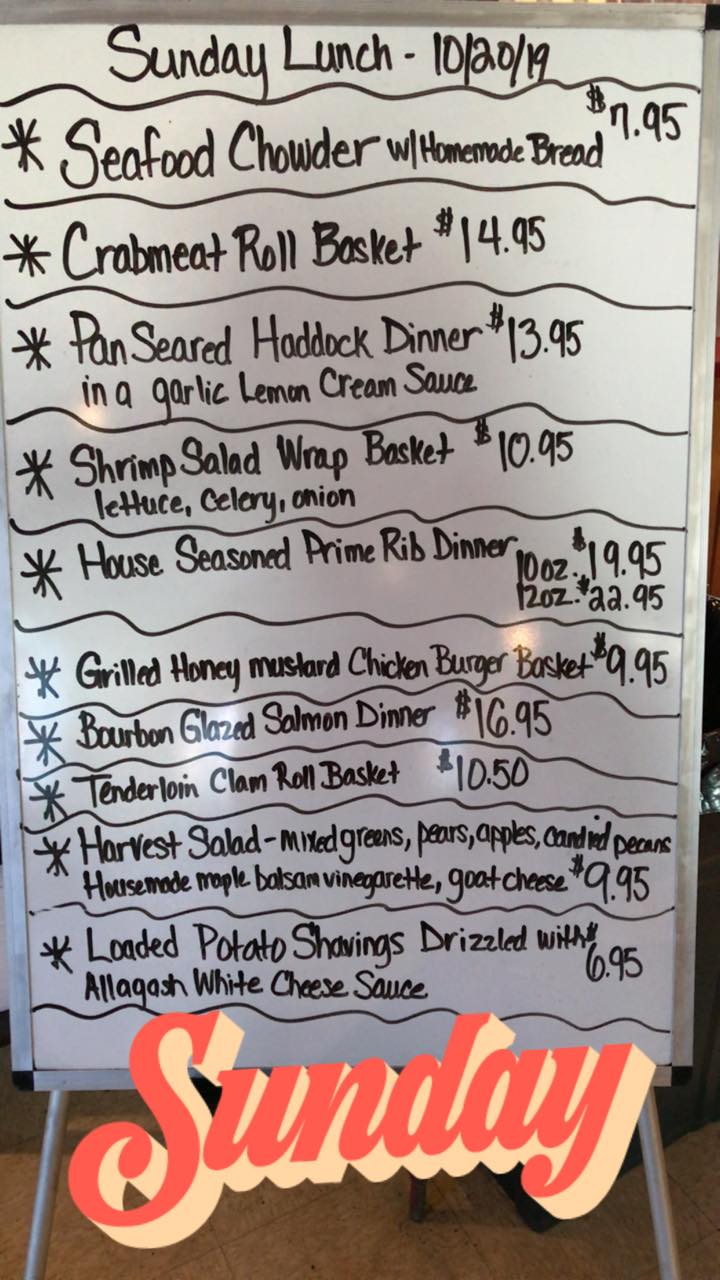 Sunday Lunch - 10/20/19
* Seafood Chowder w/Homemade Bread $7.95
* Crabmeat Roll Basket $14.95
* Pan Seared Haddock Dinner $13.95
in a garlic Lemon Cream Sauce
* Shrimp Salad Wrap Basket $10.95
lettuce, celery, onion
* House Seasoned Prime Rib Dinner 10oz. $19.95
12oz. $22.95
* Grilled Honey mustard Chicken Burger Basket $9.95
* Bourbon Glazed Salmon Dinner $16.95
* Tenderloin Clam Roll Basket $10.50
* Harvest Salad - mixed greens, pears, apples, candied pecans
Housemade maple balsam vinegarette, goat cheese $9.95
* Loaded Potato Shavings Drizzled with $6.95
Allagash White Cheese Sauce
Sunday